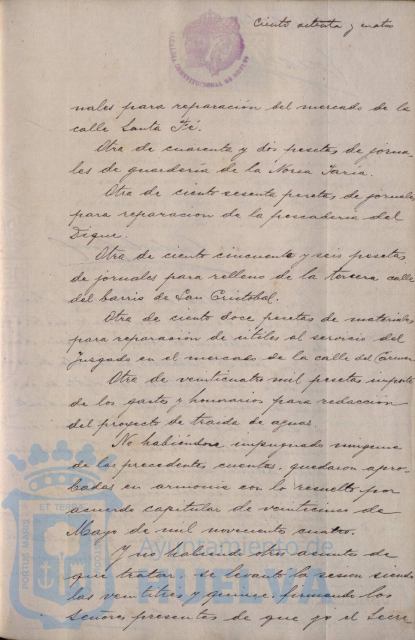 Ciento setenta y cuatro
ALCALDIA CONSTITUCIONAL DE HUELVA
nales para reparación del mercado de la
calle Santa Fé.
Otra de cuarenta y dos pesetas de jorna-
les de guardería de la Noria
Otra de ciento sesenta pesetas de jornales
para reparacion de la pescadería del
Dique.
Otra de ciento cincuenta y seis pesetas
de jornales para relleno de la tercera calle
del barrio de San Cristobal.
Otra de ciento doce pesetas de materiales
para reparacion de útiles al servicio del
Juzgado en el mercado de la calle del Carmen
Otra de veinticuatro mil pesetas importe
de los gastos y honorarios para redaccion
del proyecto de traida de aguas.
No habiendose impugnado ninguna
de las precedentes cuentas, quedaron apro-
badas en armonia con lo resuelto por
acuerdo capitular de veinticinco de
Mayo de mil novecientos cuatro.
Y no habiendo otro asuntos de
que tratar, se levantó la sesion siendo
las veintitres y quince, firmando los
Señores presentes de que yo el Secre
PORTUS MARIS ET TERRAE CUSTODIA
Ayuntamiento de
HUELVA